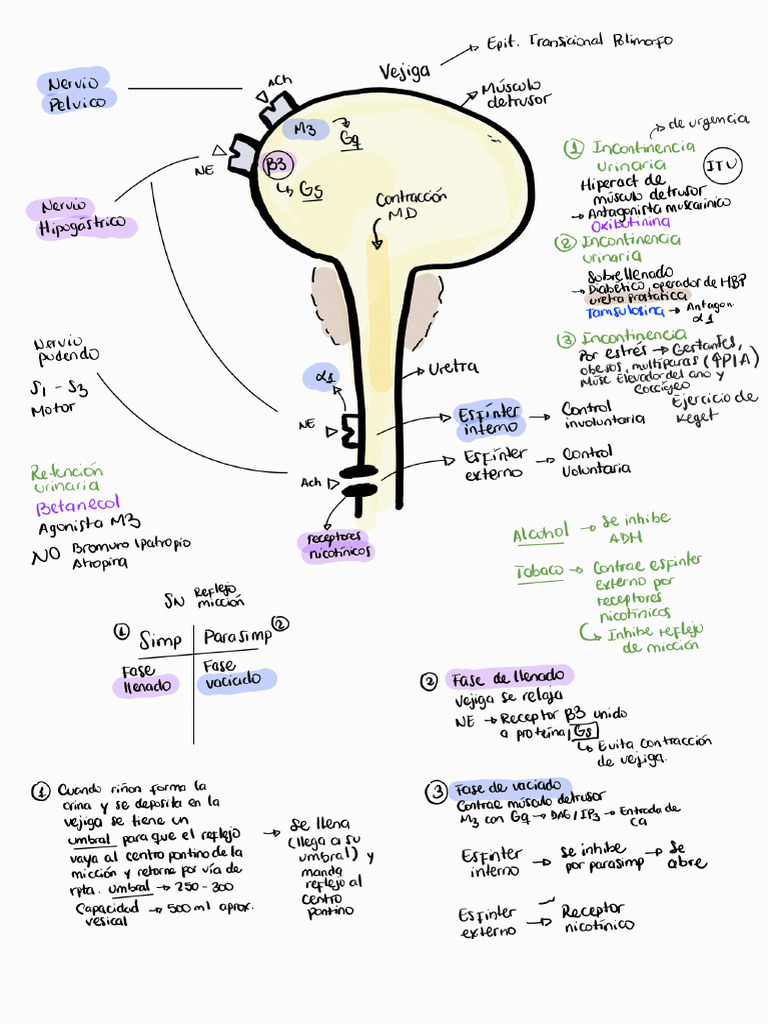 Epit. Transicional Polimorfo
Vejiga
Músculo
detrusor
Nervio
Pelvico
ACh
M3
Gq
NE
β3
Gs
Nervio
Hipogástrico
Contracción
MD
de urgencia
① Incontinencia
urinaria
ITU
Hiperact de
músculo detrusor
→ Antagonista muscarinico
Oxibutinina
② Incontinencia
urinaria
Sobrellenado
→ Diabético, operador de HBP
uretra prostatica
Tamsulosina → Antagon.
α1
③ Incontinencia
Por estrés → Gestantes,
obesos, multiparas (↑PIA)
Musc Elevador del ano y
coccígeo
Ejercicio de
Keget
Nervio
pudendo
S1 - S3
Motor
α1
Uretra
NE
Esfínter
interno
→ Control
involuntaria
Ach
Esfínter
externo
→ Control
Voluntaria
receptores
nicotínicos
Retención
urinaria
Betanecol
Agonista M3
NO Bromuro Ipatropio
Atropina
Alcohol → Se inhibe
ADH
Tabaco → Contrae esfinter
externo por
receptores
nicotínicos
Inhibe reflejo
de micción
SN Reflejo
micción
① Simp
Parasimp ②
Fase
llenado
Fase
vaciado
② Fase de llenado
Vejiga se relaja
NE → Receptor β3 unido
a proteína Gs
Evita contracción
de vejiga.
① Cuando riñon forma la
orina y se deposita en la
vejiga se tiene un
umbral para que el reflejo
vaya al centro pontino de la
micción y retorne por vía de
rpta. Umbral → 250 - 300
Capacidad → 500 ml aprox.
vesical
→ Se llena
(llega a su
umbral) y
manda
reflejo al
centro
pontino
③ Fase de vaciado
Contrae músculo detrusor
M3 con Gq → DAG / IP3 → Entrada de
Ca
Esfínter
interno
→ Se inhibe
por parasimp
→ Se
abre
Esfínter
externo
→ Receptor
nicotínico